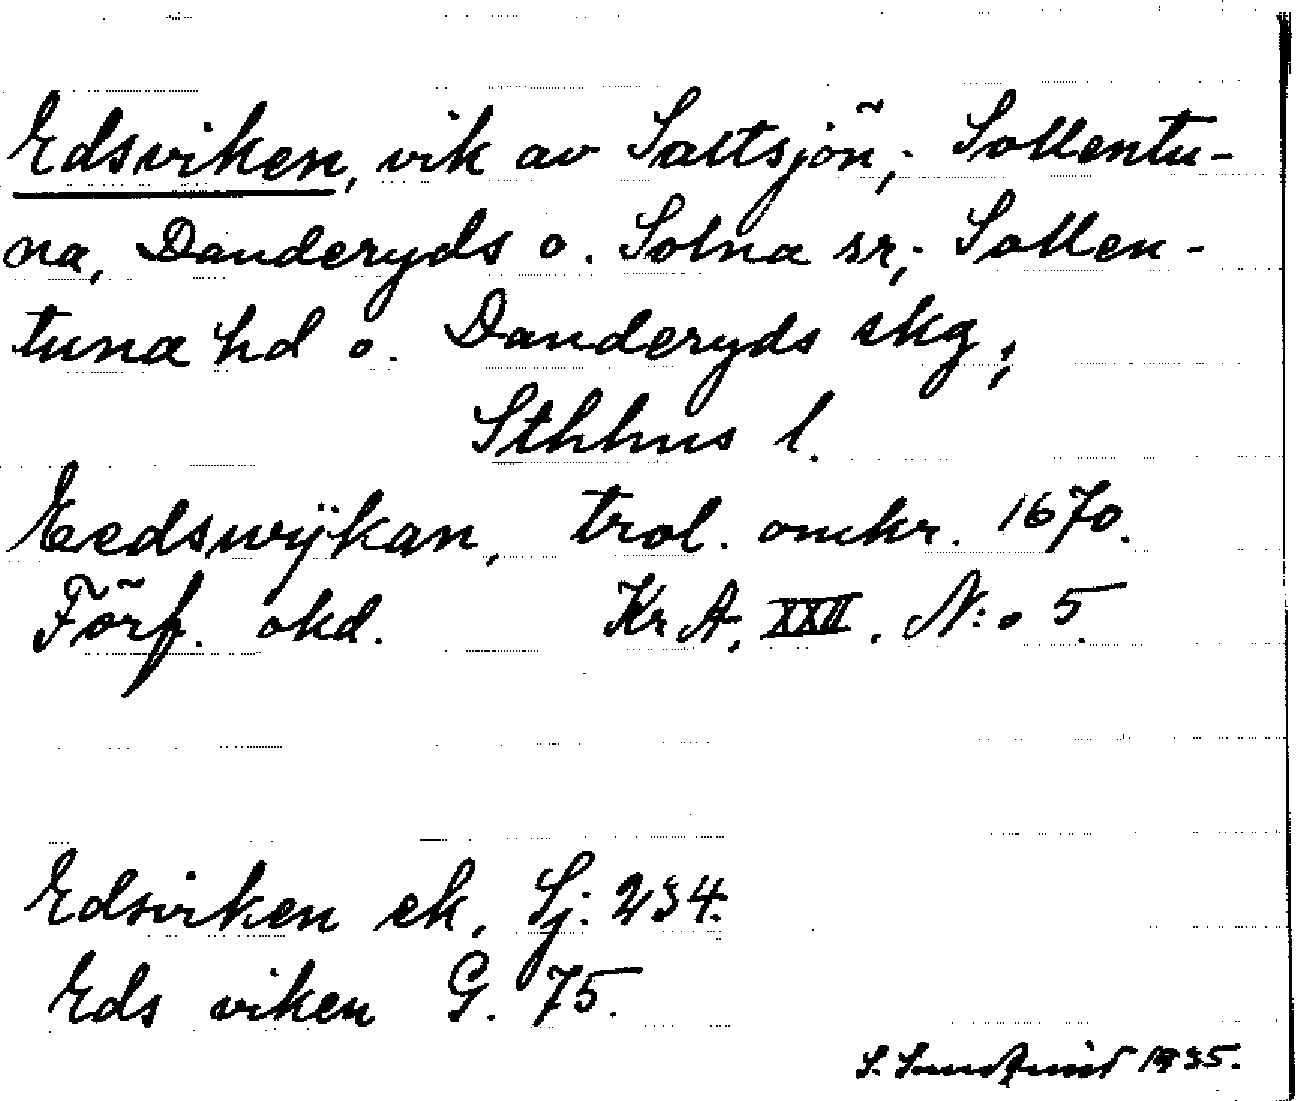 Edsviken, vik av Saltsjön; Sollentu-
na, Danderyds o. Solna sr; Sollen-
tuna hd o. Danderyds skg;
Sthlms l.
Eedswÿkan, trol. omkr. 1670.
Förf. okd. Kr A, XXII. N:o 5.
Edsviken ek. Sj. 234.
Eds viken G. 75.
S. Sundqvist 1935.